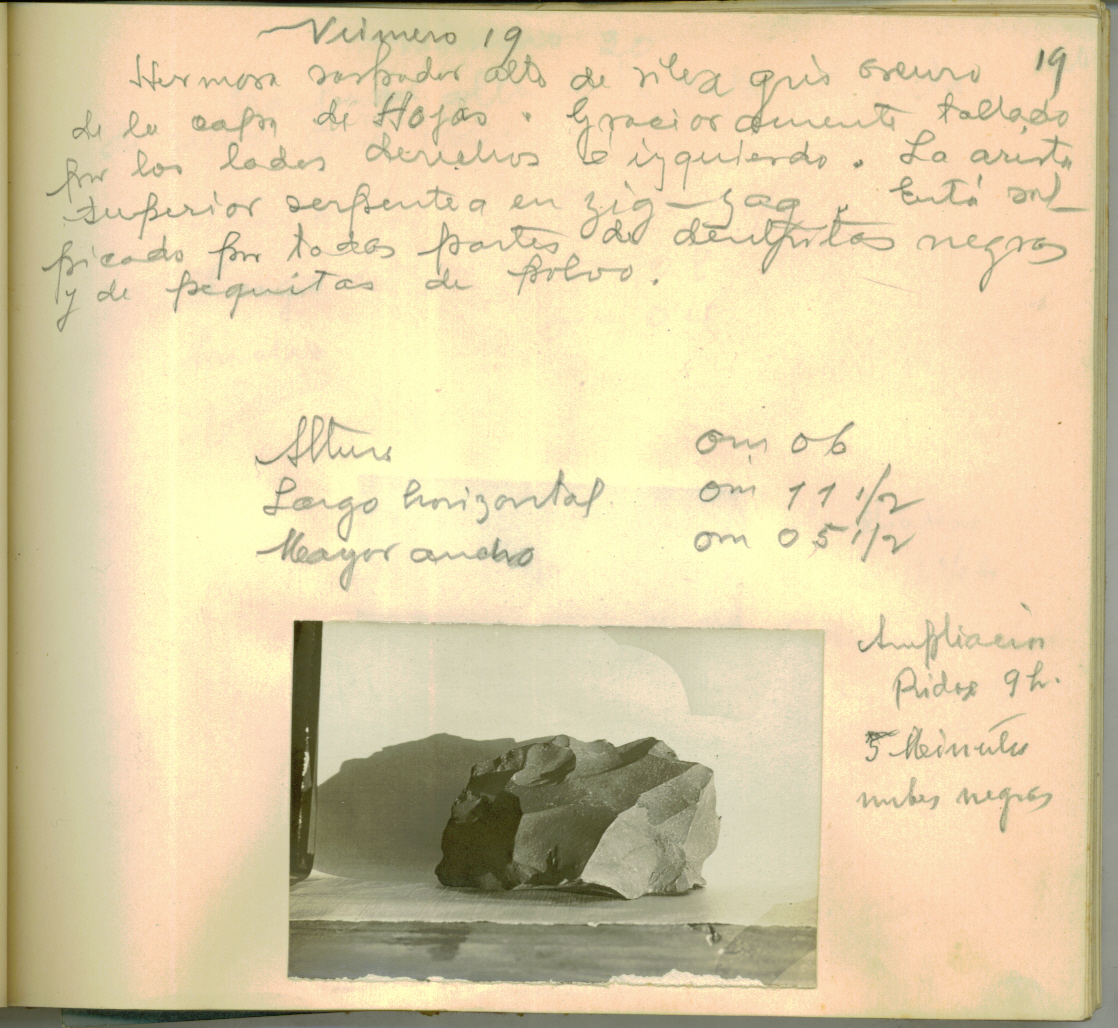 Número 19
19
Hermoso raspador alto de silex gris oscuro
de la capa de Hojas. Graciosamente tallado
por los lados derechos e izquierdo. La arista
superior serpentea en zig-zag. Está sal-
picado por todas partes de dentritas negras
y de pequitas de polvo.
Altura 0m 06
Largo horizontal 0m 11 1/2
Mayor ancho 0m 05 1/2
Ampliación
9h.
5 Minutos
nubes negras